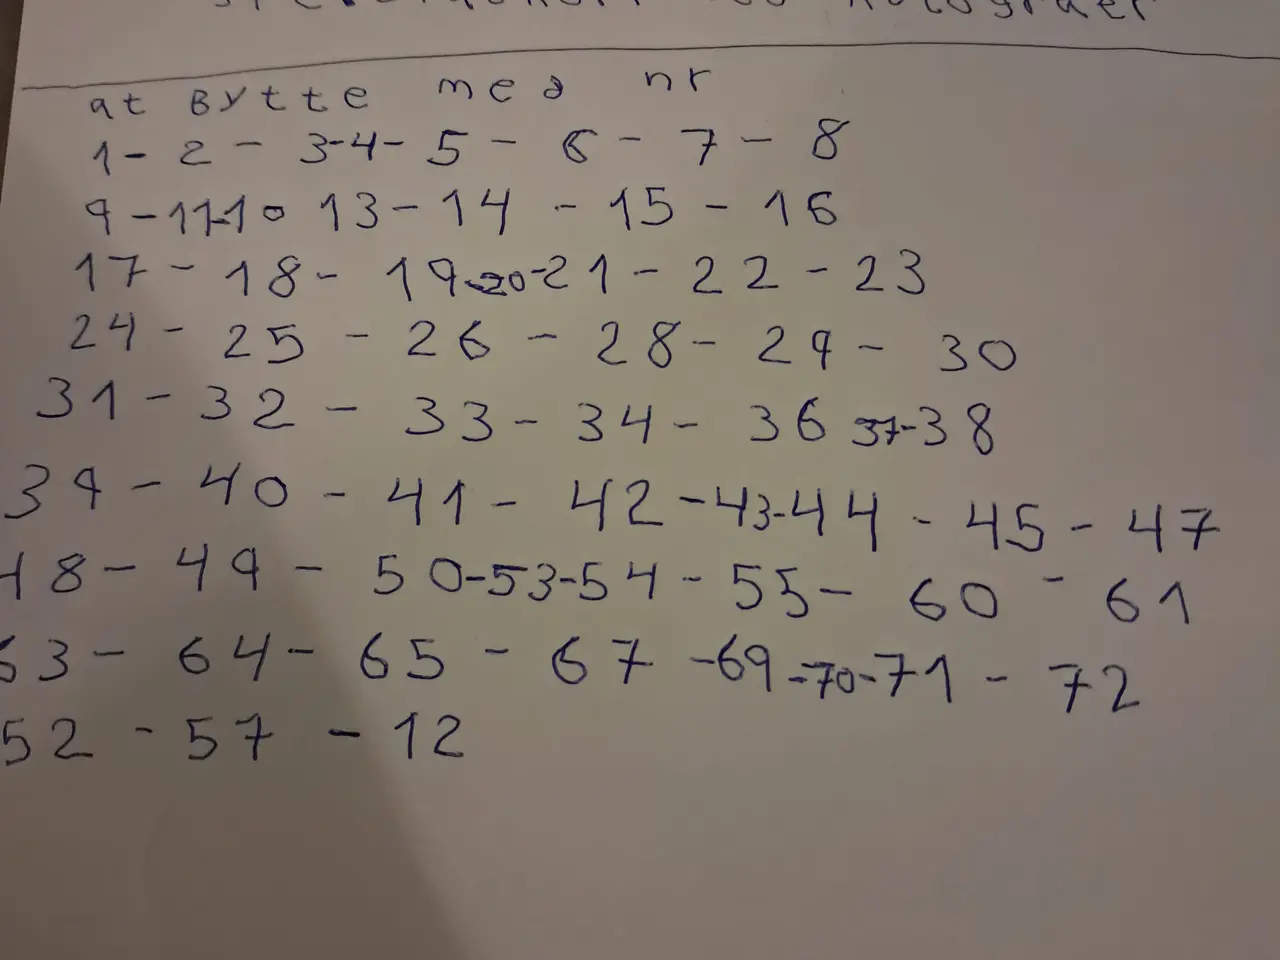 at Bytte med nr
1 - 2 - 3-4- 5 - 6 - 7 - 8
9 - 11-10 13 - 14 - 15 - 16
17 - 18 - 19-20-21 - 22 - 23
24 - 25 - 26 - 28 - 29 - 30
31 - 32 - 33 - 34 - 36 37-38
39 - 40 - 41 - 42 -43-44 - 45 - 47
48 - 49 - 50-53-54 - 55 - 60 - 61
63 - 64 - 65 - 67 -69-70-71 - 72
52 - 57 - 12